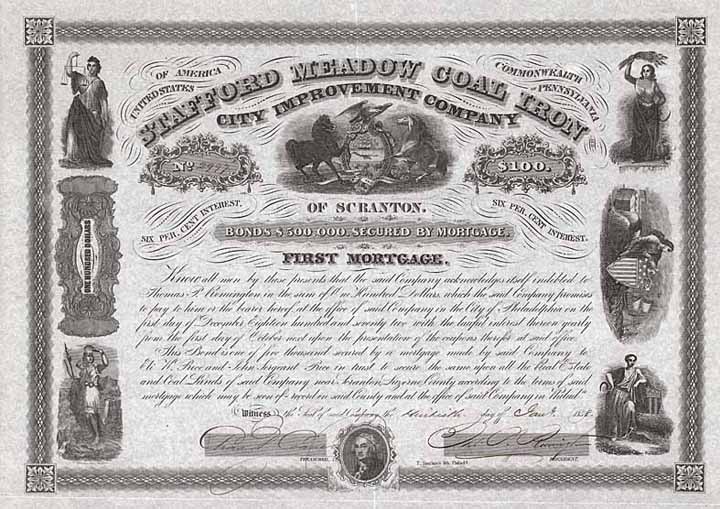 UNITED STATES OF AMERICA
COMMONWEALTH PENNSYLVANIA
STAFFORD MEADOW COAL IRON
CITY IMPROVEMENT COMPANY
No
$100.
OF SCRANTON.
SIX PER. CENT INTEREST.
SIX PER. CENT INTEREST.
BONDS $500,000. SECURED BY MORTGAGE.
FIRST MORTGAGE.
ONE HUNDRED DOLLARS
Know all men by these presents that the said Company acknowledges itself indebted to
Thomas P. Remington in the sum of One Hundred Dollars, which the said Company promises
to pay to him or the bearer hereof, at the office of said Company in the City of Philadelphia on the
first day of December Eighteen hundred and seventy two with the lawful interest thereon yearly
from the first day of October next upon the presentation of the coupons therefor at said office.
This Bond is one of five thousand secured by a mortgage made by said Company to
Eli K. Price and John Sergeant Price in trust to secure the same upon all the Real Estate
and Coal Lands of said Company near Scranton, Luzerne County according to the terms of said
mortgage which may be seen of record in said County and at the office of said Company in Philada
Witness the Seal of said Company the day of Jany. 1858
TREASURER.
T. Sinclair's lith. Philada.
PRESIDENT.